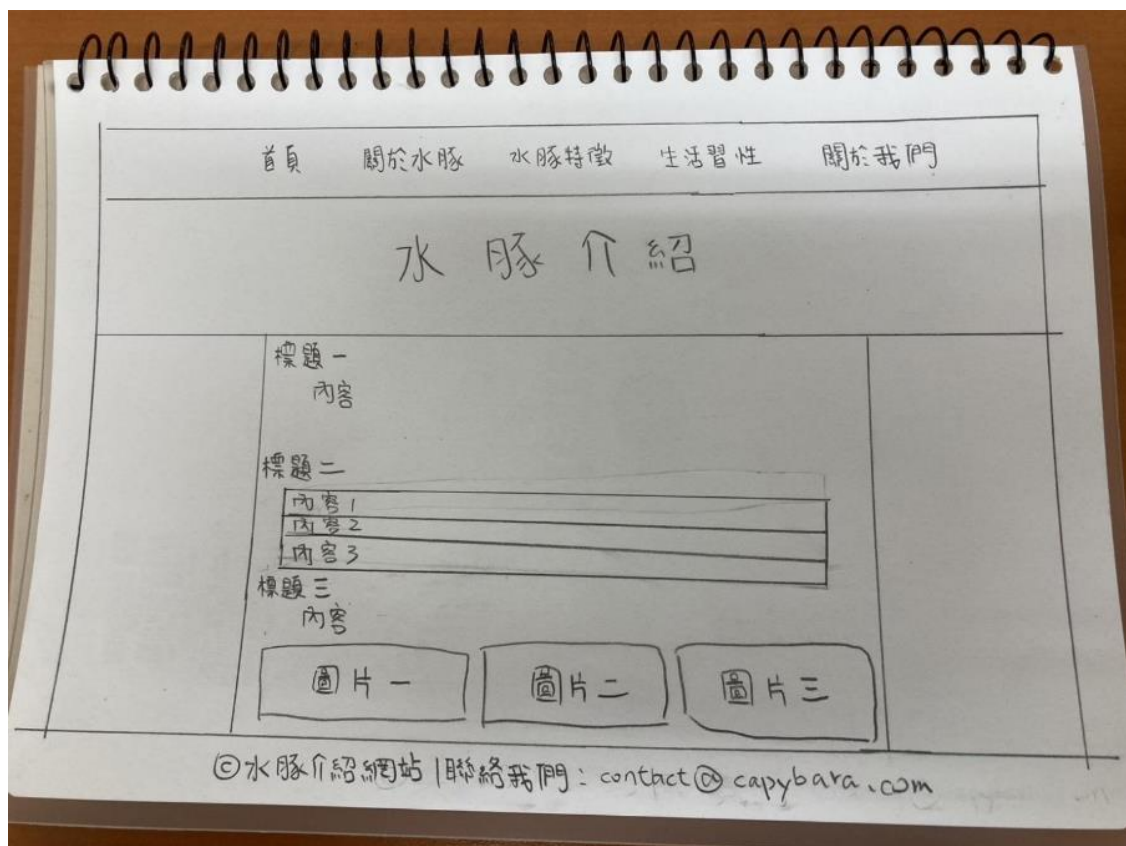 首頁 關於水豚 水豚特徵 生活習性 關於我們
水豚介紹
標題一
內容
標題二
內容1
內容2
內容3
標題三
內容
圖片一 圖片二 圖片三
©水豚介紹網站|聯絡我們：contact@capybara.com